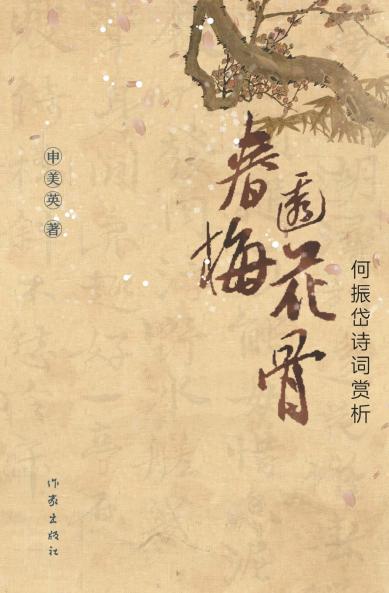 春透梅花骨
何振岱诗词赏析
申美英 著
作家出版社